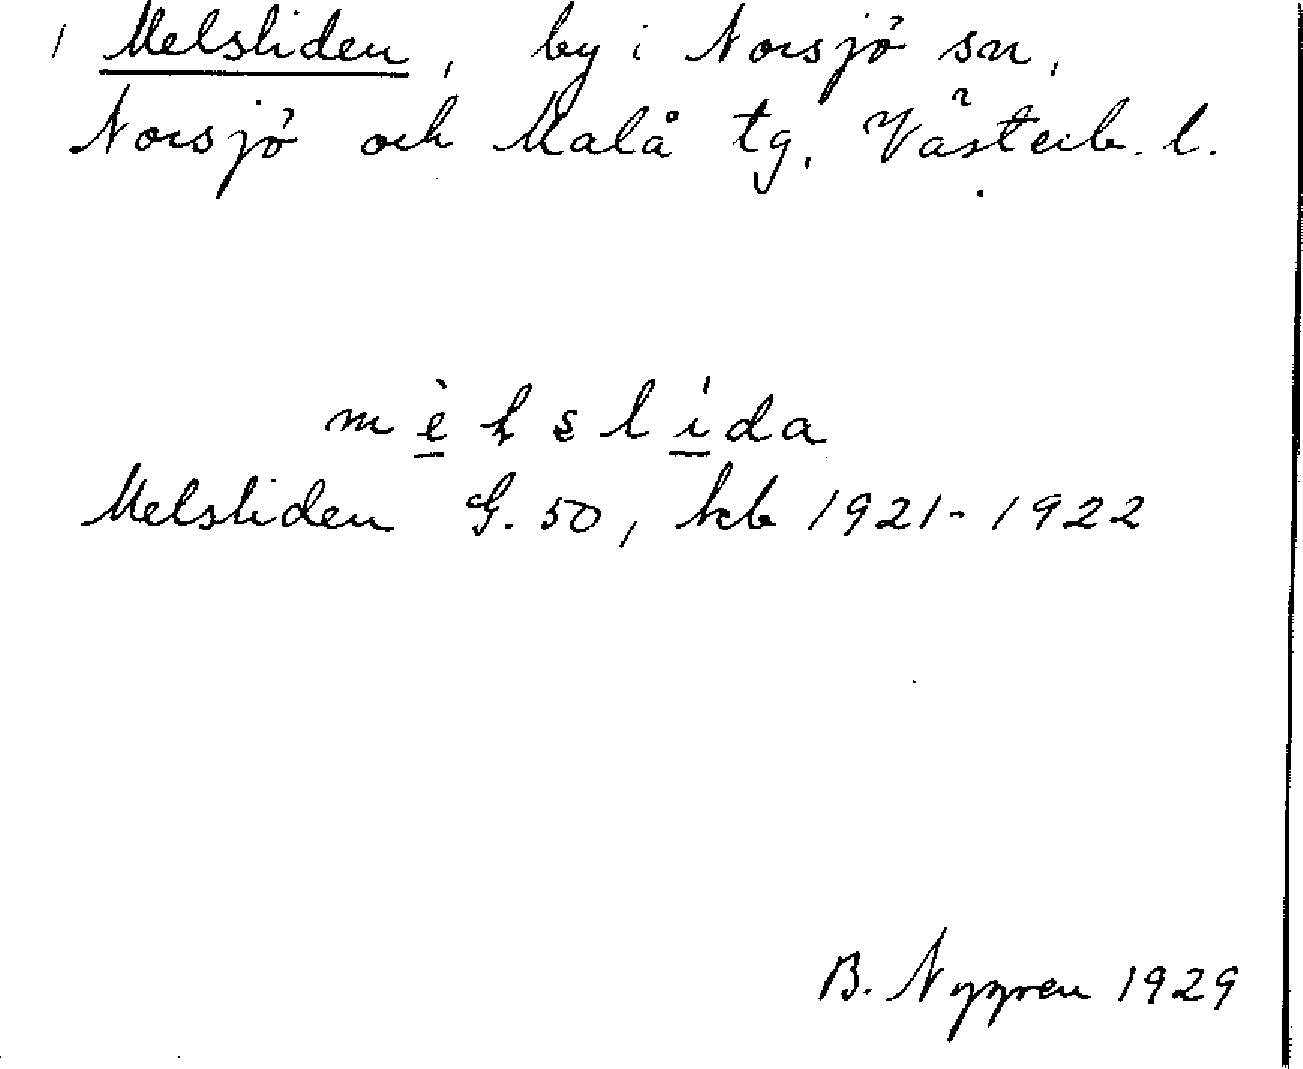 Melsliden, by i Norsjö sn,
Norsjö och Malå tg, Västerb. l.
Melsliden G. 50, kb 1921-1922
B. Nygren 1929